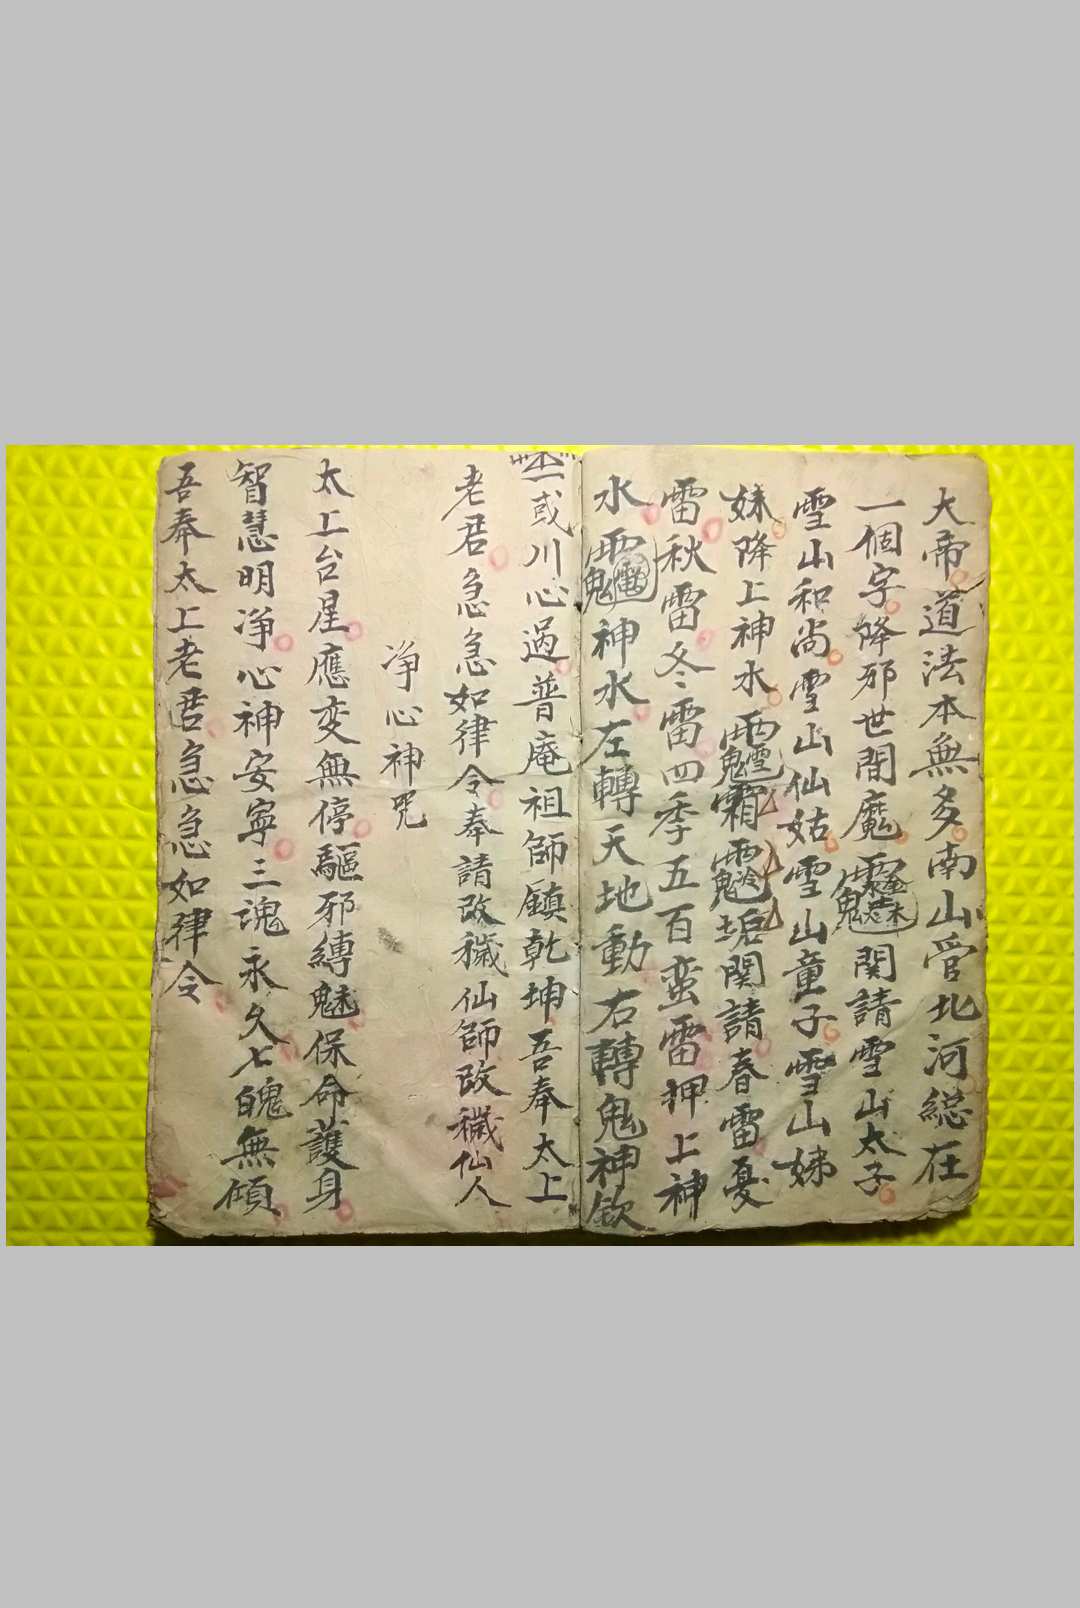 大帝道法本無多南山管北河総在
一個字降邪世間魔関請雪山太子
雪山和尚雪山仙姑雪山童子雪山娣
妹降上神水霜関請春雷憂
雷秋雷冬雷四季五百蛮雷押上神
水神水左轉天地動右轉鬼神欽
或川心過普庵祖師鎮乾坤吾奉太上
老君急急如律令奉請改穢仙師改穢仙人
净心神咒
太上台星應变無停驅邪縛魅保命護身
智慧明净心神安寧三魂永久七魄無傾
吾奉太上老君急急如律令